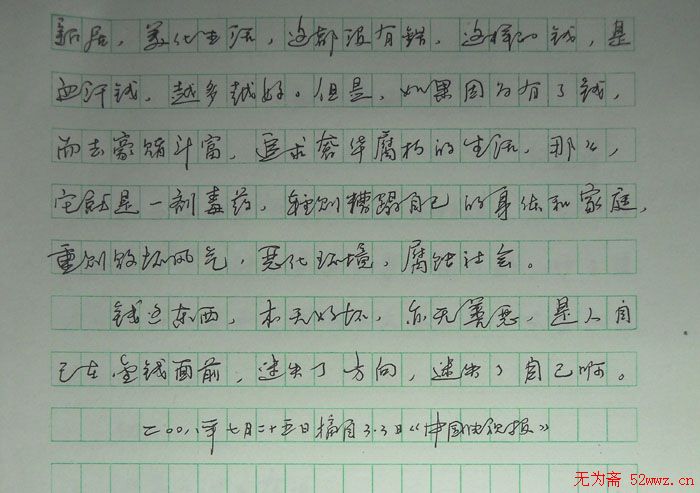 新居，美化生活，这都没有错。这样的钱，是
血汗钱，越多越好。但是，如果因为有了钱，
而去豪赌斗富，追求奢华腐朽的生活，那么，
它就是一剂毒药，轻则糟蹋自己的身体和家庭，
重则败坏风气，恶化环境，腐蚀社会。
钱这东西，本无好坏，亦无善恶，是人自
己在金钱面前，迷失了方向，迷失了自己啊。
二〇〇八年七月二十五日摘自3.3日《中国电视报》
无为斋 52wwz.cn